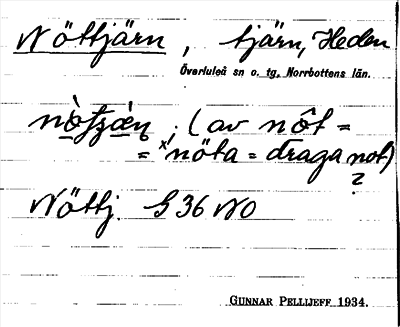 Nöttjärn, tjärn, Heden
Överluleå sn o. tg. Norrbottens län.
; (av nôt =
= ˣnöta = draga not)
?
Nöttj. G 36 NO
GUNNAR PELLIJEFF 1934.